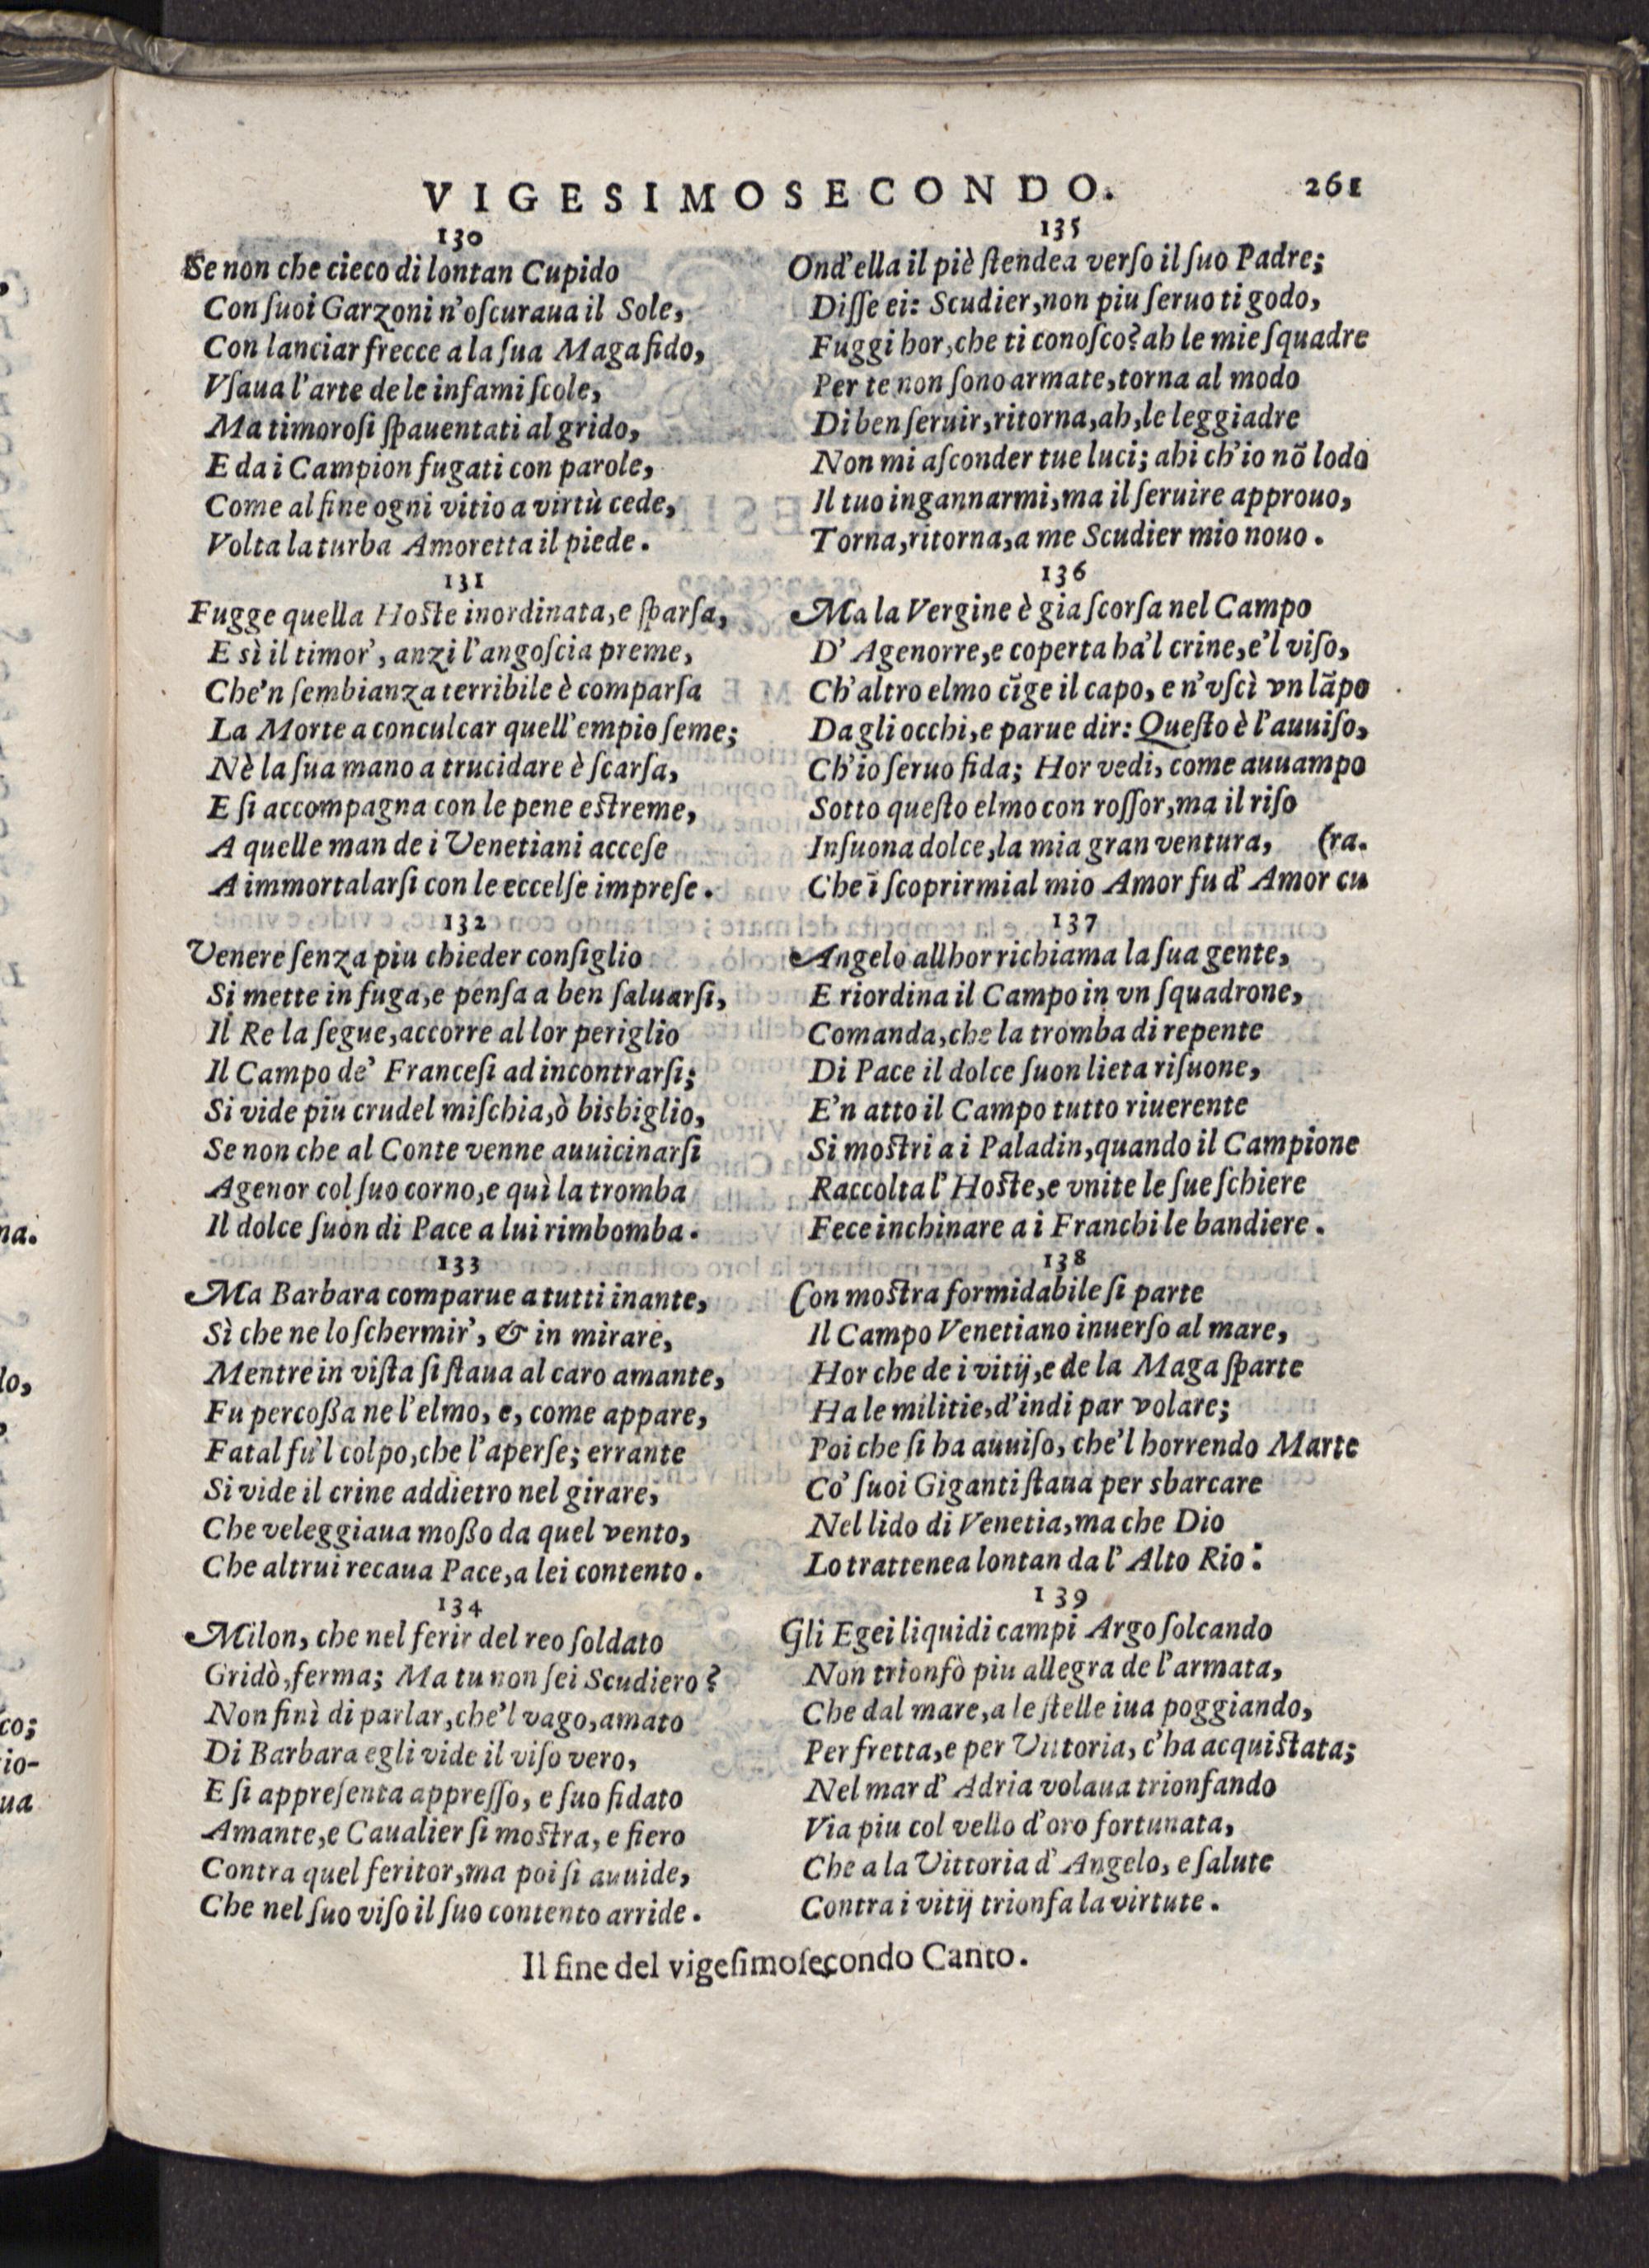 VIGESIMOSECONDO. 261
130
Se non che cieco di lontan Cupido
Con ſuoi Garzoni n'oſcuraua il Sole,
Con lanciar frecce a la ſua Maga fido,
Vſaua l'arte de le infami ſcole,
Ma timoroſi ſpauentati al grido,
E da i Campion fugati con parole,
Come al fine ogni vitio a virtù cede,
Volta la turba Amoretta il piede.
131
Fugge quella Hoſte inordinata, e ſparſa,
E sì il timor', anzi l'angoſcia preme,
Che'n ſembianza terribile è comparſa
La Morte a conculcar quell'empio ſeme;
Nè la ſua mano a trucidare è ſcarſa,
E ſi accompagna con le pene eſtreme,
A quelle man de i Venetiani acceſe
A immortalarſi con le eccelſe impreſe.
132
Venere ſenza piu chieder conſiglio
Si mette in fuga, e penſa a ben ſaluarſi,
Il Re la ſegue, accorre al lor periglio
Il Campo de' Franceſi ad incontrarſi;
Si vide piu crudel miſchia, ò bisbiglio,
Se non che al Conte venne auuicinarſi
Agenor col ſuo corno, e quì la tromba
Il dolce ſuon di Pace a lui rimbomba.
133
Ma Barbara comparue a tutti inante,
Sì che ne lo ſchermir', & in mirare,
Mentre in viſta ſi ſtaua al caro amante,
Fu percoßa ne l'elmo, e, come appare,
Fatal fu'l colpo, che l'aperſe; errante
Si vide il crine addietro nel girare,
Che veleggiaua moßo da quel vento,
Che altrui recaua Pace, a lei contento.
134
Milon, che nel ferir del reo ſoldato
Gridò, ferma; Ma tu non ſei Scudiero?
Non finì di parlar, che'l vago, amato
Di Barbara egli vide il viſo vero,
E ſi appreſenta appreſſo, e ſuo fidato
Amante, e Caualier ſi moſtra, e fiero
Contra quel feritor, ma poi ſi auuide,
Che nel ſuo viſo il ſuo contento arride.
135
Ond'ella il piè ſtendea verſo il ſuo Padre;
Diſſe ei: Scudier, non piu ſeruo ti godo,
Fuggi hor, che ti conoſco? ah le mie ſquadre
Per te non ſono armate, torna al modo
Di ben ſeruir, ritorna, ah, le leggiadre
Non mi aſconder tue luci; ahi ch'io nõ lodo
Il tuo ingannarmi, ma il ſeruire approuo,
Torna, ritorna, a me Scudier mio nouo.
136
Ma la Vergine è gia ſcorſa nel Campo
D'Agenorre, e coperta ha'l crine, e'l viſo,
Ch'altro elmo cĩge il capo, e n'vſcì vn lãpo
Da gli occhi, e parue dir: Queſto è l'auuiſo,
Ch'io ſeruo fida; Hor vedi, come auuampo
Sotto queſto elmo con roſſor, ma il riſo
Inſuona dolce, la mia gran ventura, (ra.
Che ĩ ſcoprirmi al mio Amor fu d'Amor cu
137
Angelo allhor richiama la ſua gente,
E riordina il Campo in vn ſquadrone,
Comanda, che la tromba di repente
Di Pace il dolce ſuon lieta riſuone,
E'n atto il Campo tutto riuerente
Si moſtri a i Paladin, quando il Campione
Raccolta l'Hoſte, e vnite le ſue ſchiere
Fece inchinare a i Franchi le bandiere.
138
Con moſtra formidabile ſi parte
Il Campo Venetiano inuerſo al mare,
Hor che de i vitij, e de la Maga ſparte
Ha le militie, d'indi par volare;
Poi che ſi ha auuiſo, che'l horrendo Marte
Co' ſuoi Giganti ſtaua per sbarcare
Nel lido di Venetia, ma che Dio
Lo trattenea lontan da l'Alto Rio:
139
Gli Egei liquidi campi Argo ſolcando
Non trionfò piu allegra de l'armata,
Che dal mare, a le ſtelle iua poggiando,
Per fretta, e per Vittoria, c'ha acquiſtata;
Nel mar d'Adria volaua trionfando
Via piu col vello d'oro fortunata,
Che a la Vittoria d'Angelo, e ſalute
Contra i vitij trionfa la virtute.
Il fine del vigeſimoſecondo Canto.